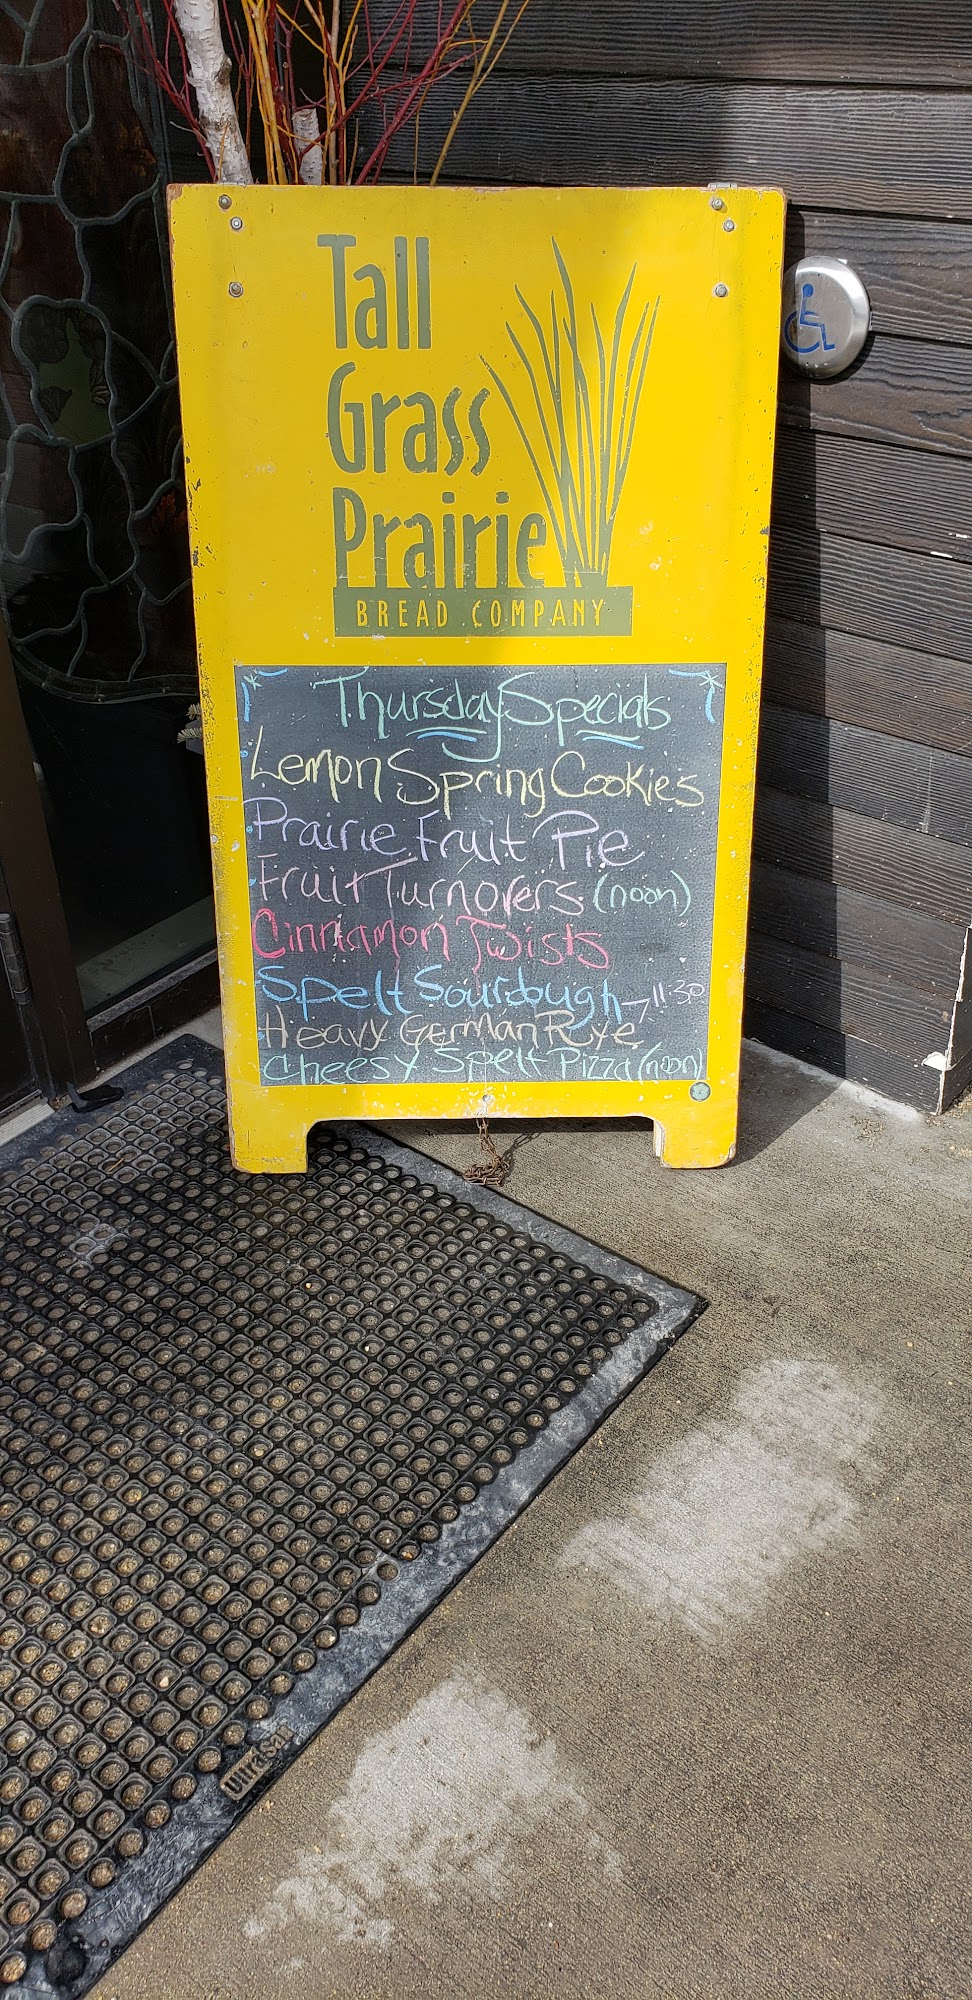 Tall
Grass
Prairie
BREAD COMPANY
Thursday Specials
Lemon Spring Cookies
Prairie Fruit Pie
Fruit Turnovers (noon)
Cinnamon Twists
Spelt Sourdough 11:30
Heavy German Rye
Cheesy Spelt Pizza (noon)
UltraSak